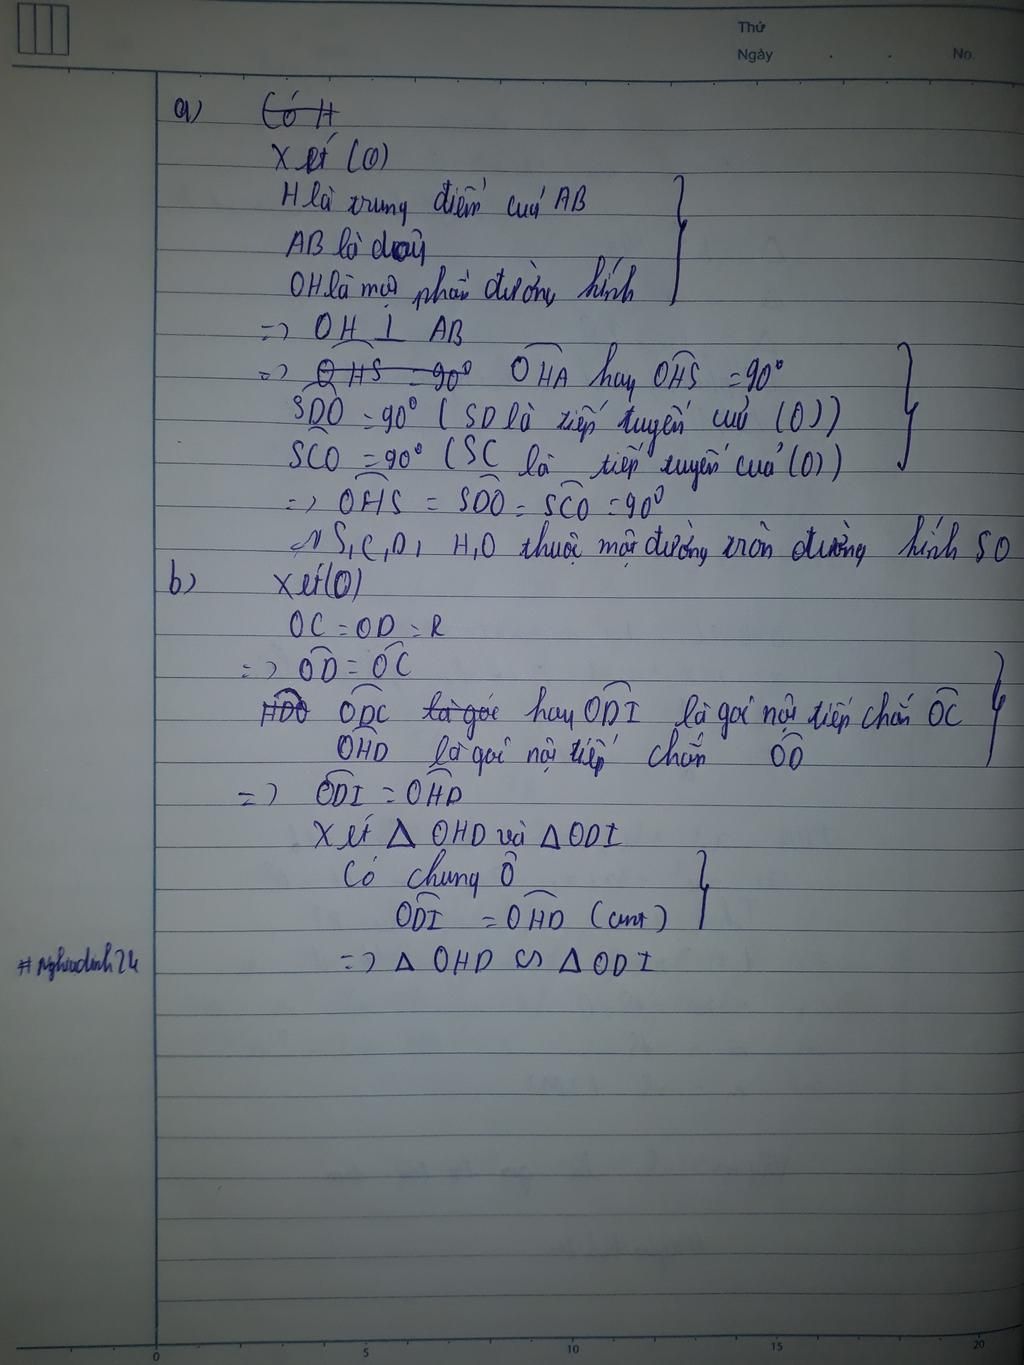 Thứ
Ngày . . No.
a) Có H
Xét (O)
H là trung điểm của AB
AB là dây
OH là một phần đường kính
=> OH ⊥ AB
=> OHS = 90° OHA hay OHS = 90°
SDO = 90° (SD là tiếp tuyến của (O))
SCO = 90° (SC là tiếp tuyến của (O))
=> OHS = SDO = SCO = 90°
S, C, D, H, O thuộc một đường tròn đường kính SO
b) Xét (O)
OC = OD = R
=> OD = OC
HDO ODC là góc hay ODI là góc nội tiếp chắn OC
OHD là góc nội tiếp chắn OD
=> ODI = OHD
Xét Δ OHD và Δ ODI
Có chung Ô
ODI = OHD (cmt)
=> Δ OHD ∽ Δ ODI
0 5 10 15 20